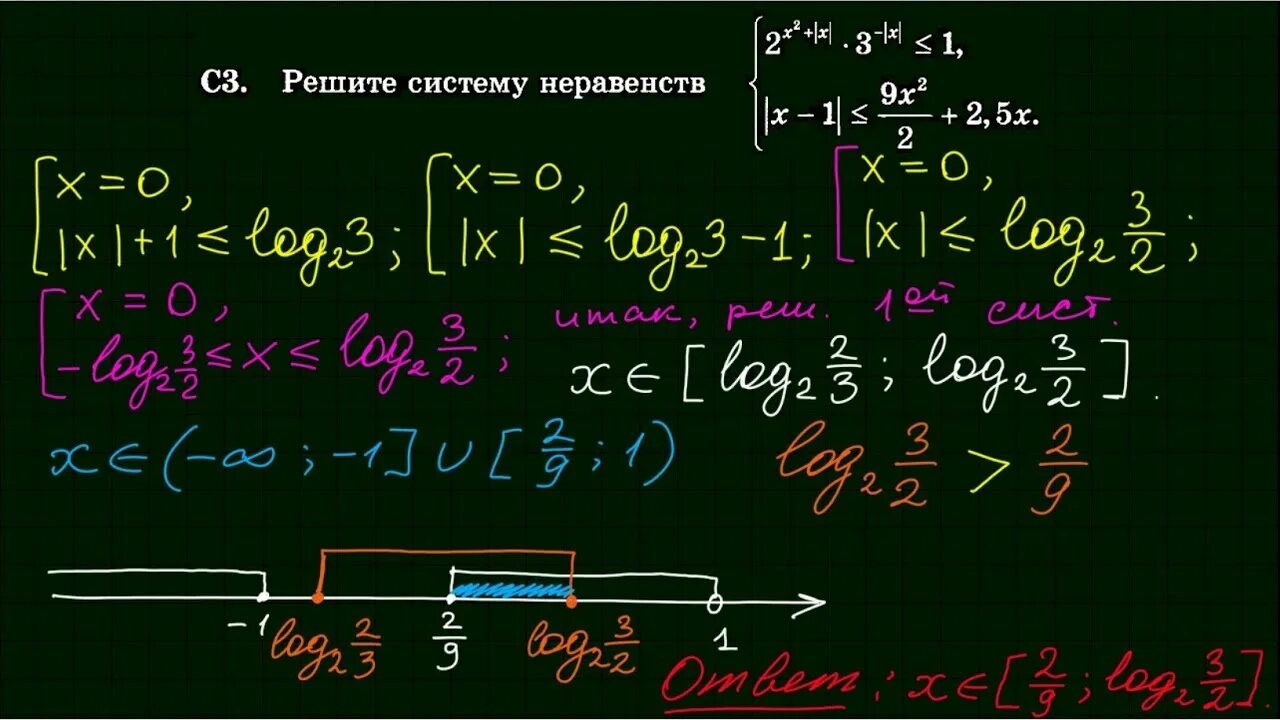 С3. Решите систему неравенств
{ 2^{x²+|x|} · 3^{-|x|} ≤ 1,
|x − 1| ≤ 9x²/2 + 2,5x.
[ x = 0,
|x| + 1 ≤ log₂3;
[ x = 0,
|x| ≤ log₂3 − 1;
[ x = 0,
|x| ≤ log₂ 3/2;
[ x = 0,
−log₂ 3/2 ≤ x ≤ log₂ 3/2;
итак, реш. 1ой сист.
x ∈ [log₂ 2/3; log₂ 3/2].
x ∈ (−∞; −1] ∪ [2/9; 1)
log₂ 3/2 > 2/9
−1 log₂ 2/3 2/9 log₂ 3/2 1
Ответ: x ∈ [2/9; log₂ 3/2].